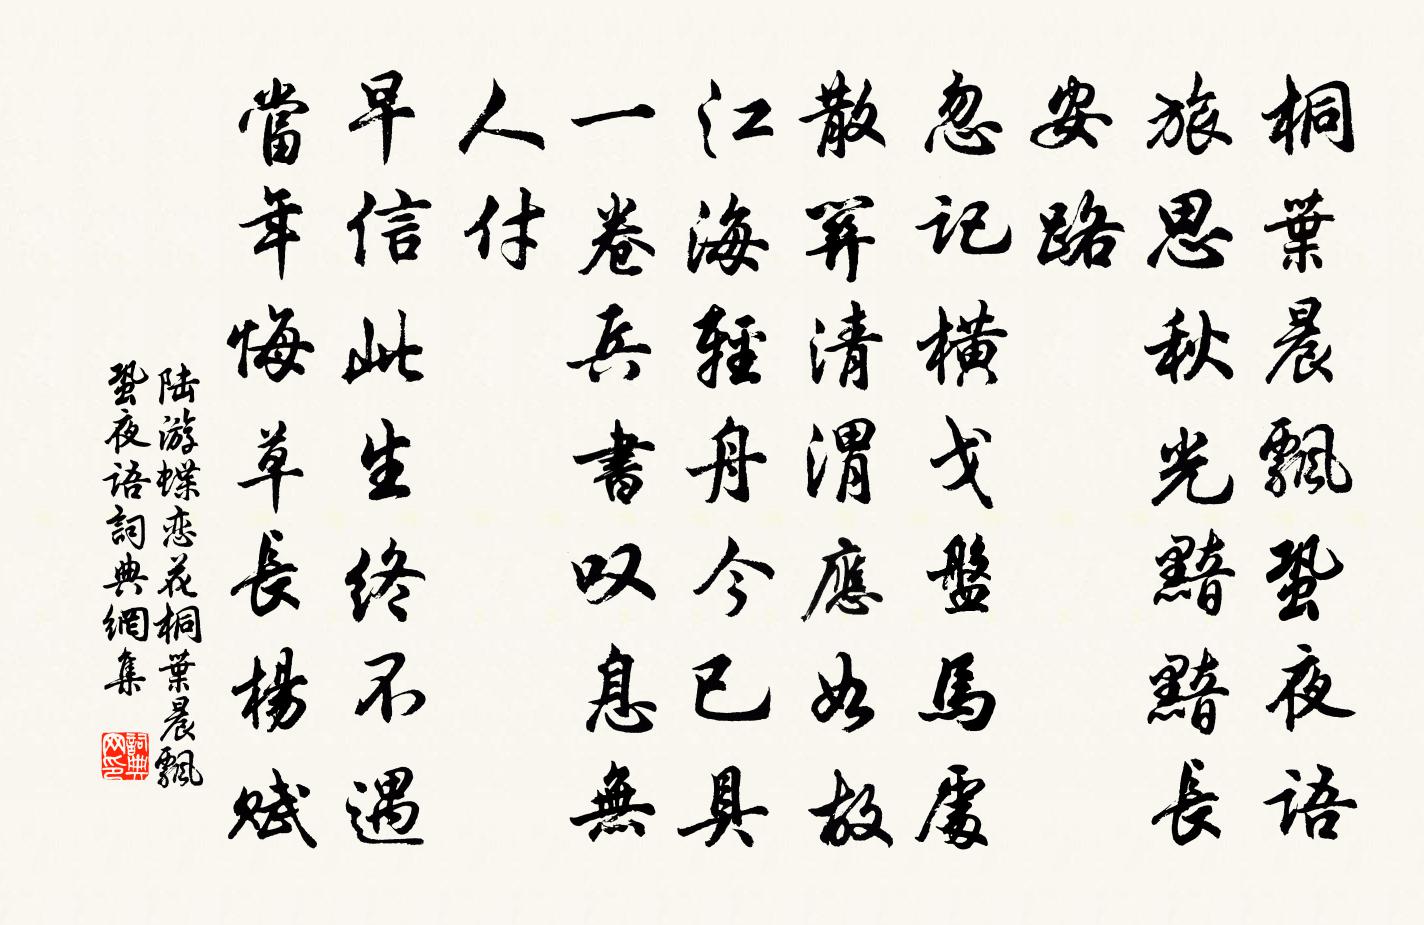 桐葉晨飄蛩夜语
旅思秋光黯黯長
安路
忽記橫戈盤馬處
散關清渭應如故
江海輕舟今已具
一卷兵書叹息無
人付
早信此生终不遇
當年悔草長楊赋
陆游蝶恋花桐葉晨飄
蛩夜语詞典網集
詞典网印